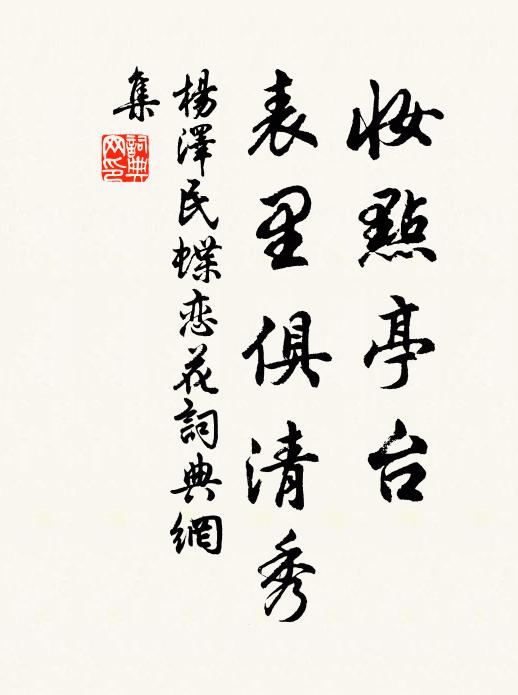 妝點亭台
表里俱清秀
楊澤民蝶恋花詞典網
集
詞典
网印